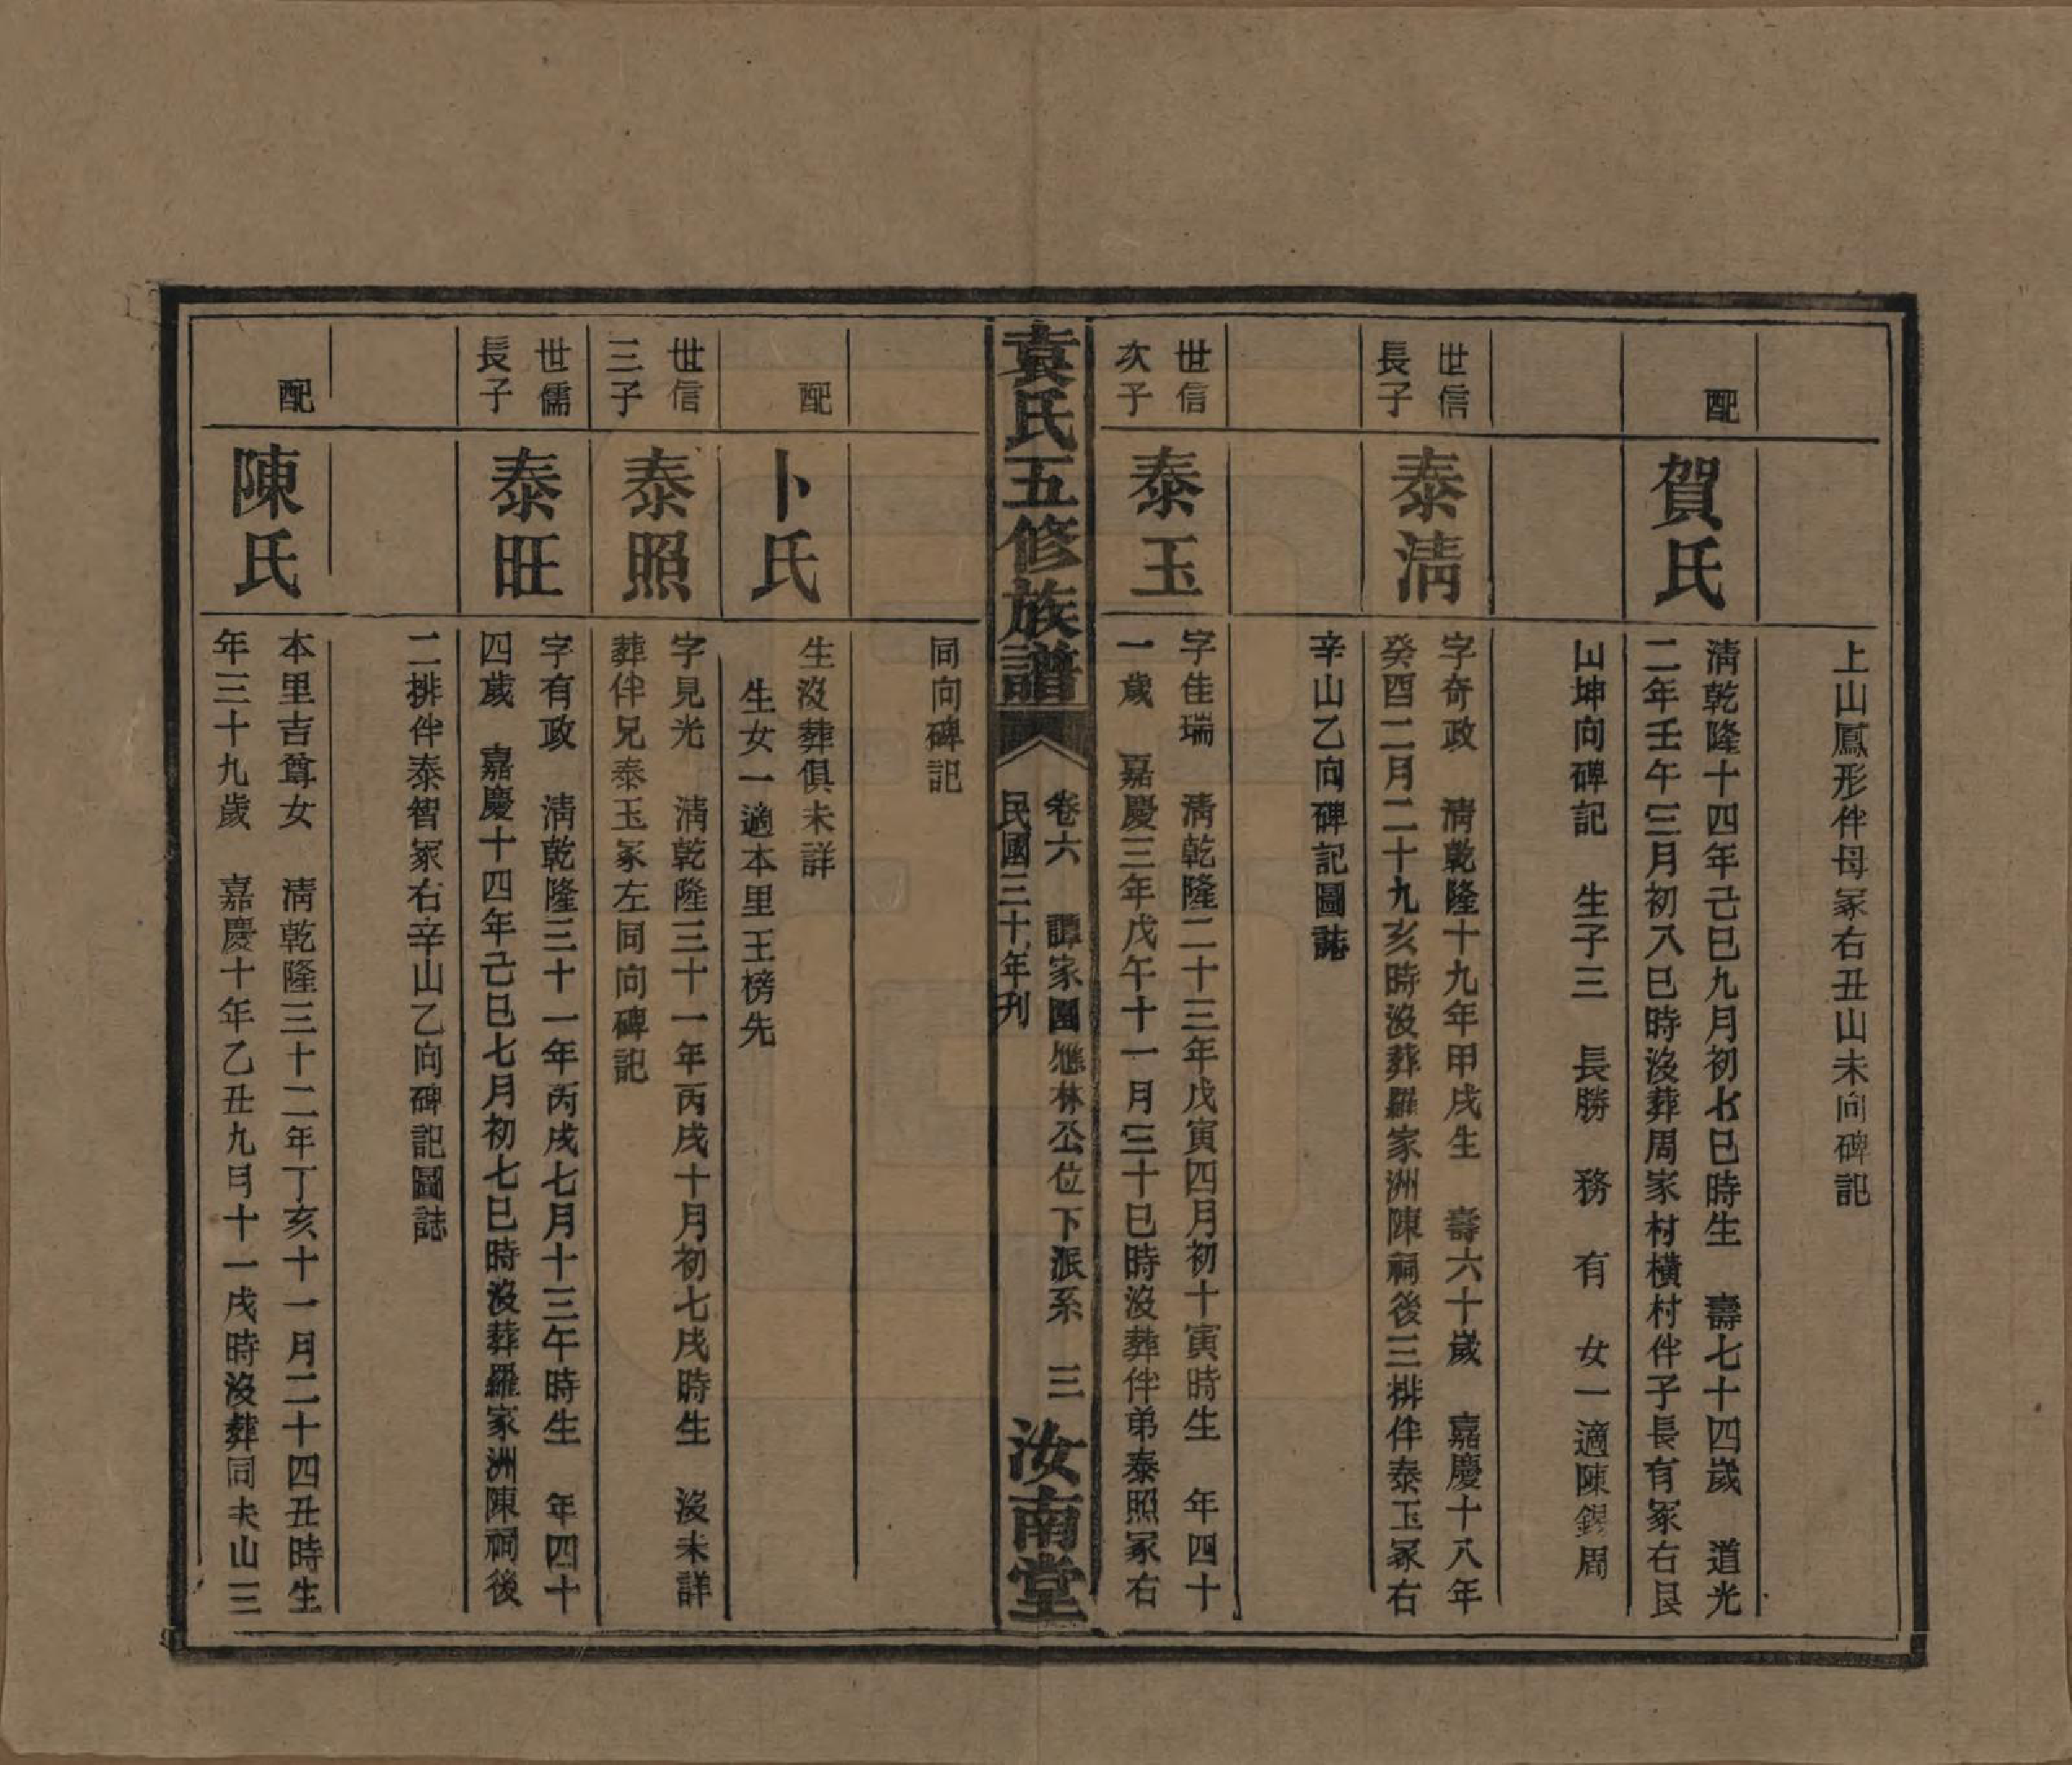 上山鳳形伴母冢右丑山未向碑記
配
賀氏
清乾隆十四年己巳九月初七巳時生　壽七十四歲　道光
二年壬午三月初八巳時沒葬周家村橫村伴子長有冢右艮
山坤向碑記　生子三　長勝　務　有　女一適陳錫周
世信
長子
泰清
字奇政　清乾隆十九年甲戌生　壽六十歲　嘉慶十八年
癸酉二月二十九亥時沒葬羅家洲陳祠後三排伴泰玉冢右
辛山乙向碑記圖誌
世信
次子
泰玉
字佳瑞　清乾隆二十三年戊寅四月初十寅時生　年四十
一歲　嘉慶三年戊午十一月三十巳時沒葬伴弟泰照冢右
袁氏五修族譜
卷六　譚家園應林公位下派系　三
民國三十年刊
汝南堂
同向碑記
配
卜氏
生沒葬俱未詳
生女一適本里王榜先
世信
三子
泰照
字見光　清乾隆三十一年丙戌十月初七戌時生　沒未詳
葬伴兄泰玉冢左同向碑記
世儒
長子
泰旺
字有政　清乾隆三十一年丙戌七月十三午時生　年四十
四歲　嘉慶十四年己巳七月初七巳時沒葬羅家洲陳祠後
二排伴泰智冢右辛山乙向碑記圖誌
配
陳氏
本里吉尊女　清乾隆三十二年丁亥十一月二十四丑時生
年三十九歲　嘉慶十年乙丑九月十一戌時沒葬同夫山三